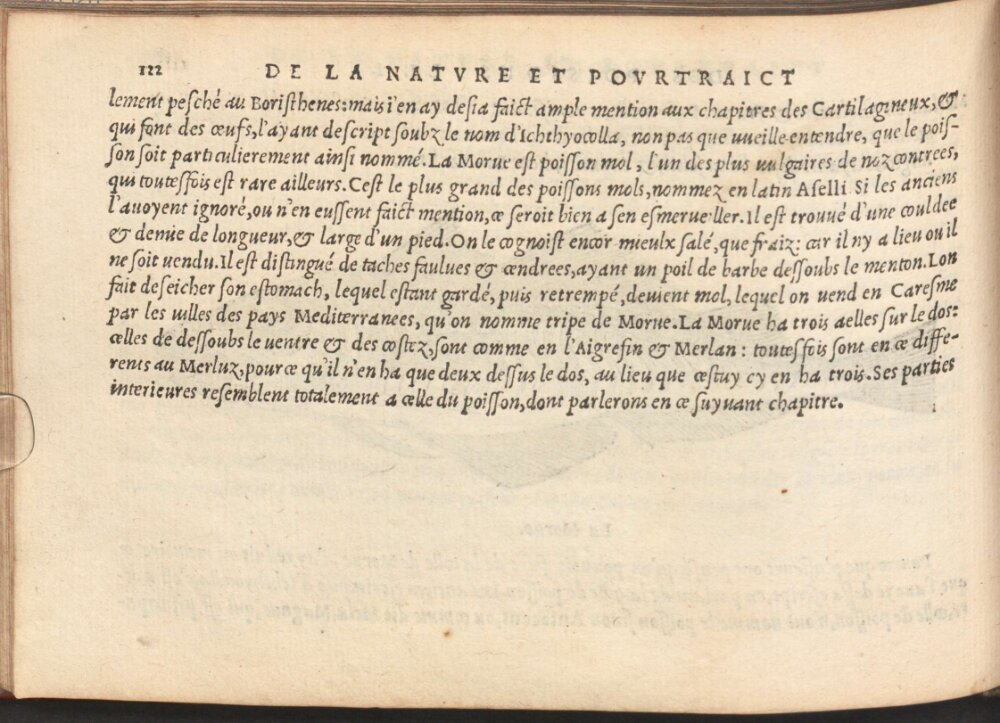 122 DE LA NATVRE ET POVRTRAICT
lement pesché au Boristhenes: mais i'en ay desia faict ample mention aux chapitres des Cartilagineux, &
qui font des œufs, l'ayant descript soubz le nom d'Ichthyocolla, non pas que vueille entendre, que le pois-
son soit particulierement ainsi nommé. La Morue est poisson mol, l'un des plus vulgaires de noz contrees,
qui toutesfois est rare ailleurs. C'est le plus grand des poissons mols, nommez en latin Aselli. Si les anciens
l'auoyent ignoré, ou n'en eussent faict mention, ce seroit bien a s'en esmerueiller. Il est trouué d'une couldee
& demie de longueur, & large d'un pied. On le cognoist encor mieulx salé, que fraiz: car il ny a lieu ou il
ne soit uendu. Il est distingué de taches faulues & cendrees, ayant un poil de barbe dessoubs le menton. Lon
fait deseicher son estomach, lequel estant gardé, puis retrempé, deuient mol, lequel on uend en Caresme
par les uilles des pays Mediterranees, qu'on nomme tripe de Morue. La Morue ha trois aelles sur le dos:
celles de dessoubs le uentre & des costez, sont comme en l'Aigrefin & Merlan: toutesfois sont en ce diffe-
rents au Merluz, pource qu'il n'en ha que deux dessus le dos, au lieu que cestuy cy en ha trois. Ses parties
interieures resemblent totalement a celle du poisson, dont parlerons en ce suyuant chapitre.